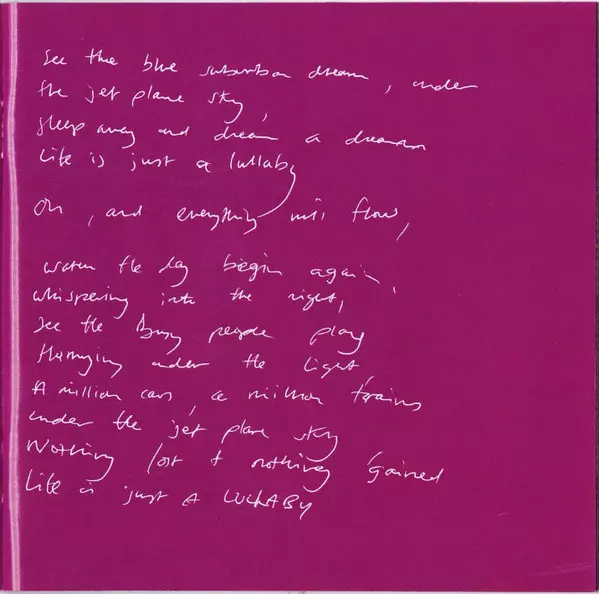 See the blue suburban dream, under
the jet plane sky,
Sleep away and dream a dream
Life is just a lullaby
Oh, and everything will flow,
watch the day begin again,
whispering into the night,
See the Busy people play
Hurrying under the light
A million cars, a million trains
under the jet plane sky
Nothing lost & nothing gained
Life is just A LULLABY